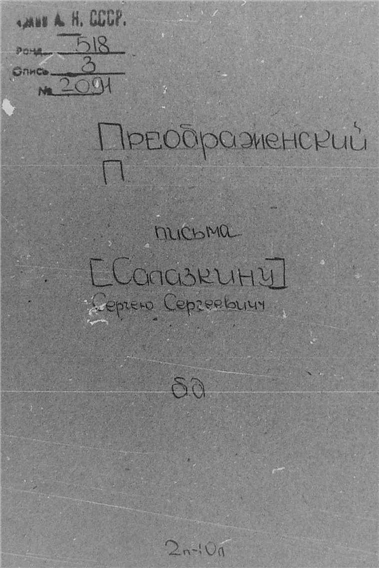 А. Н. СССР.
Фонд 518
Опись 3
№ 2091
Преображенский
П.
письма
[Салазкину]
Сергею Сергеевичу
бд